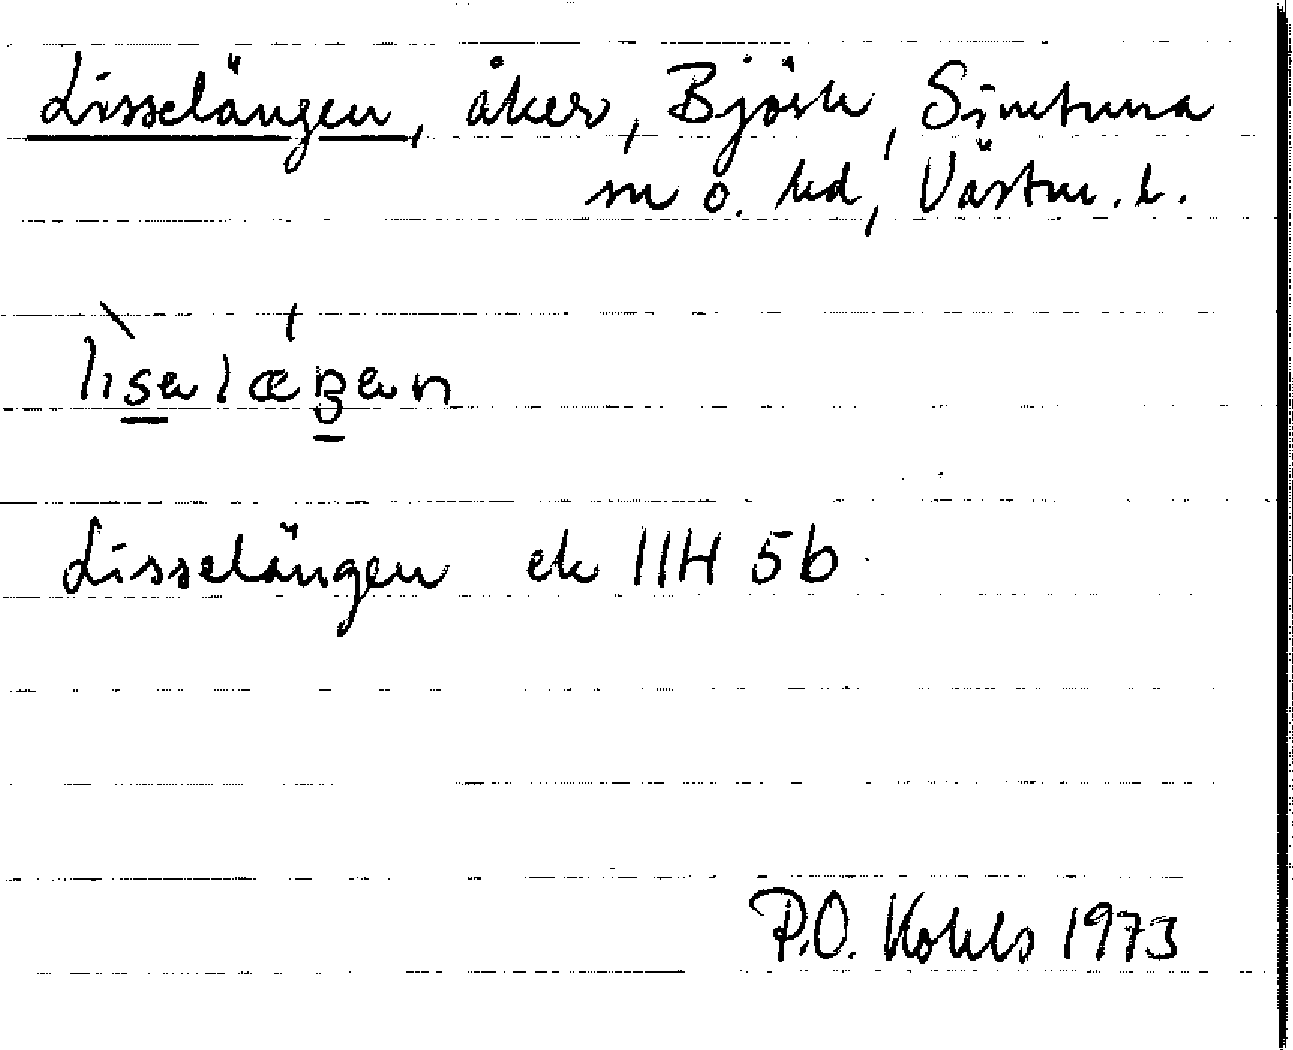 Lisselängen, åker, Björk, Simtuna
sn o. hd, Västm. l.
Lisselängen ek 11H 5b
P.O. Kohls 1973